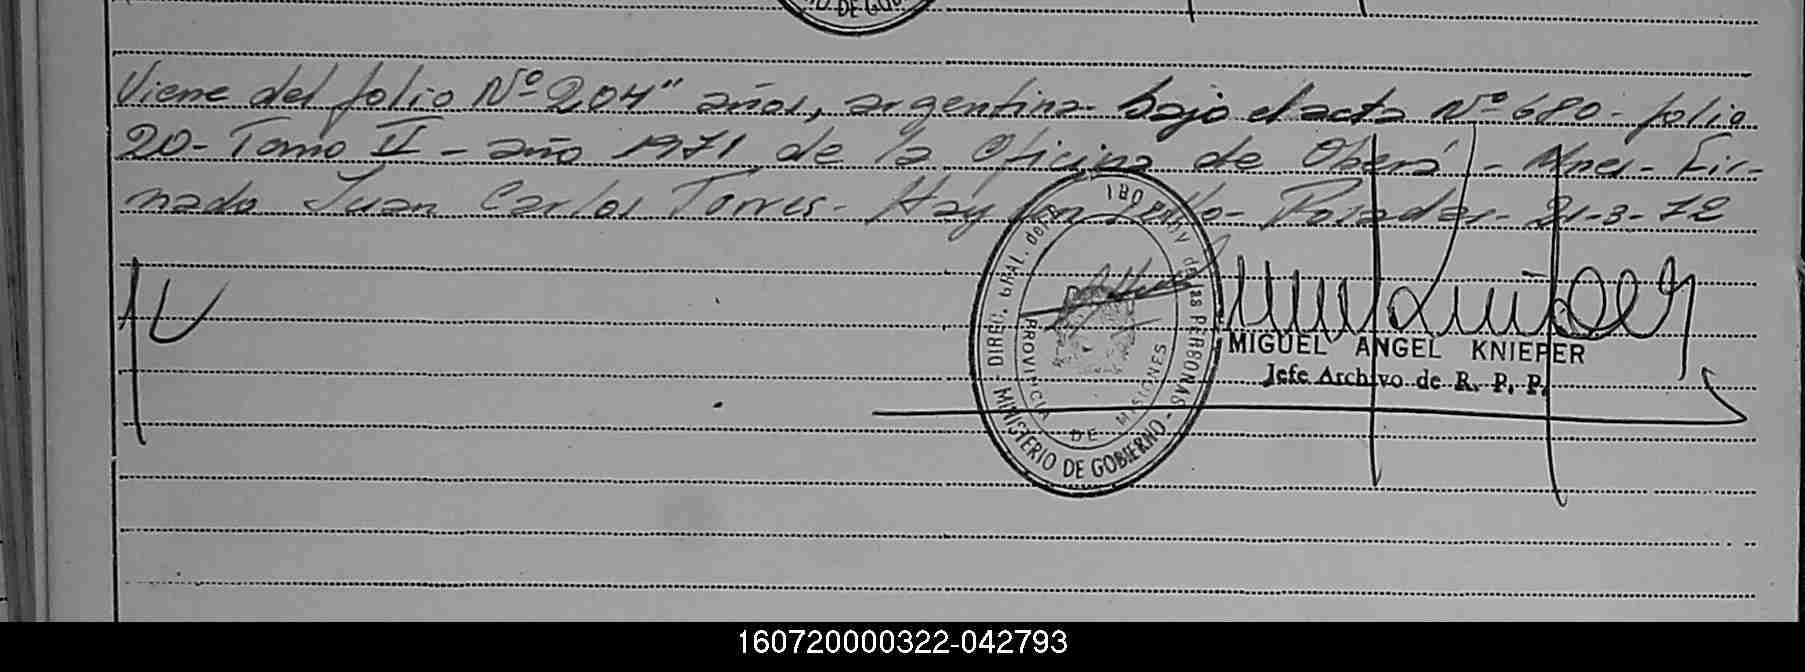 DE GOB
Viene del folio Nº 204" años, argentina bajo el acta Nº 680- folio
20- Tomo II - año 1971 de la Oficina de Oberá - Mnes - Fir-
mado Juan Carlos Torres - Hay un sello - Posadas - 21-3-72
DIREC. GRAL. del R PROV. de las PERSONAS
PROVINCIA DE MISIONES
- MINISTERIO DE GOBIERNO -
MIGUEL ANGEL KNIEPER
Jefe Archivo de R. P. P.
160720000322-042793